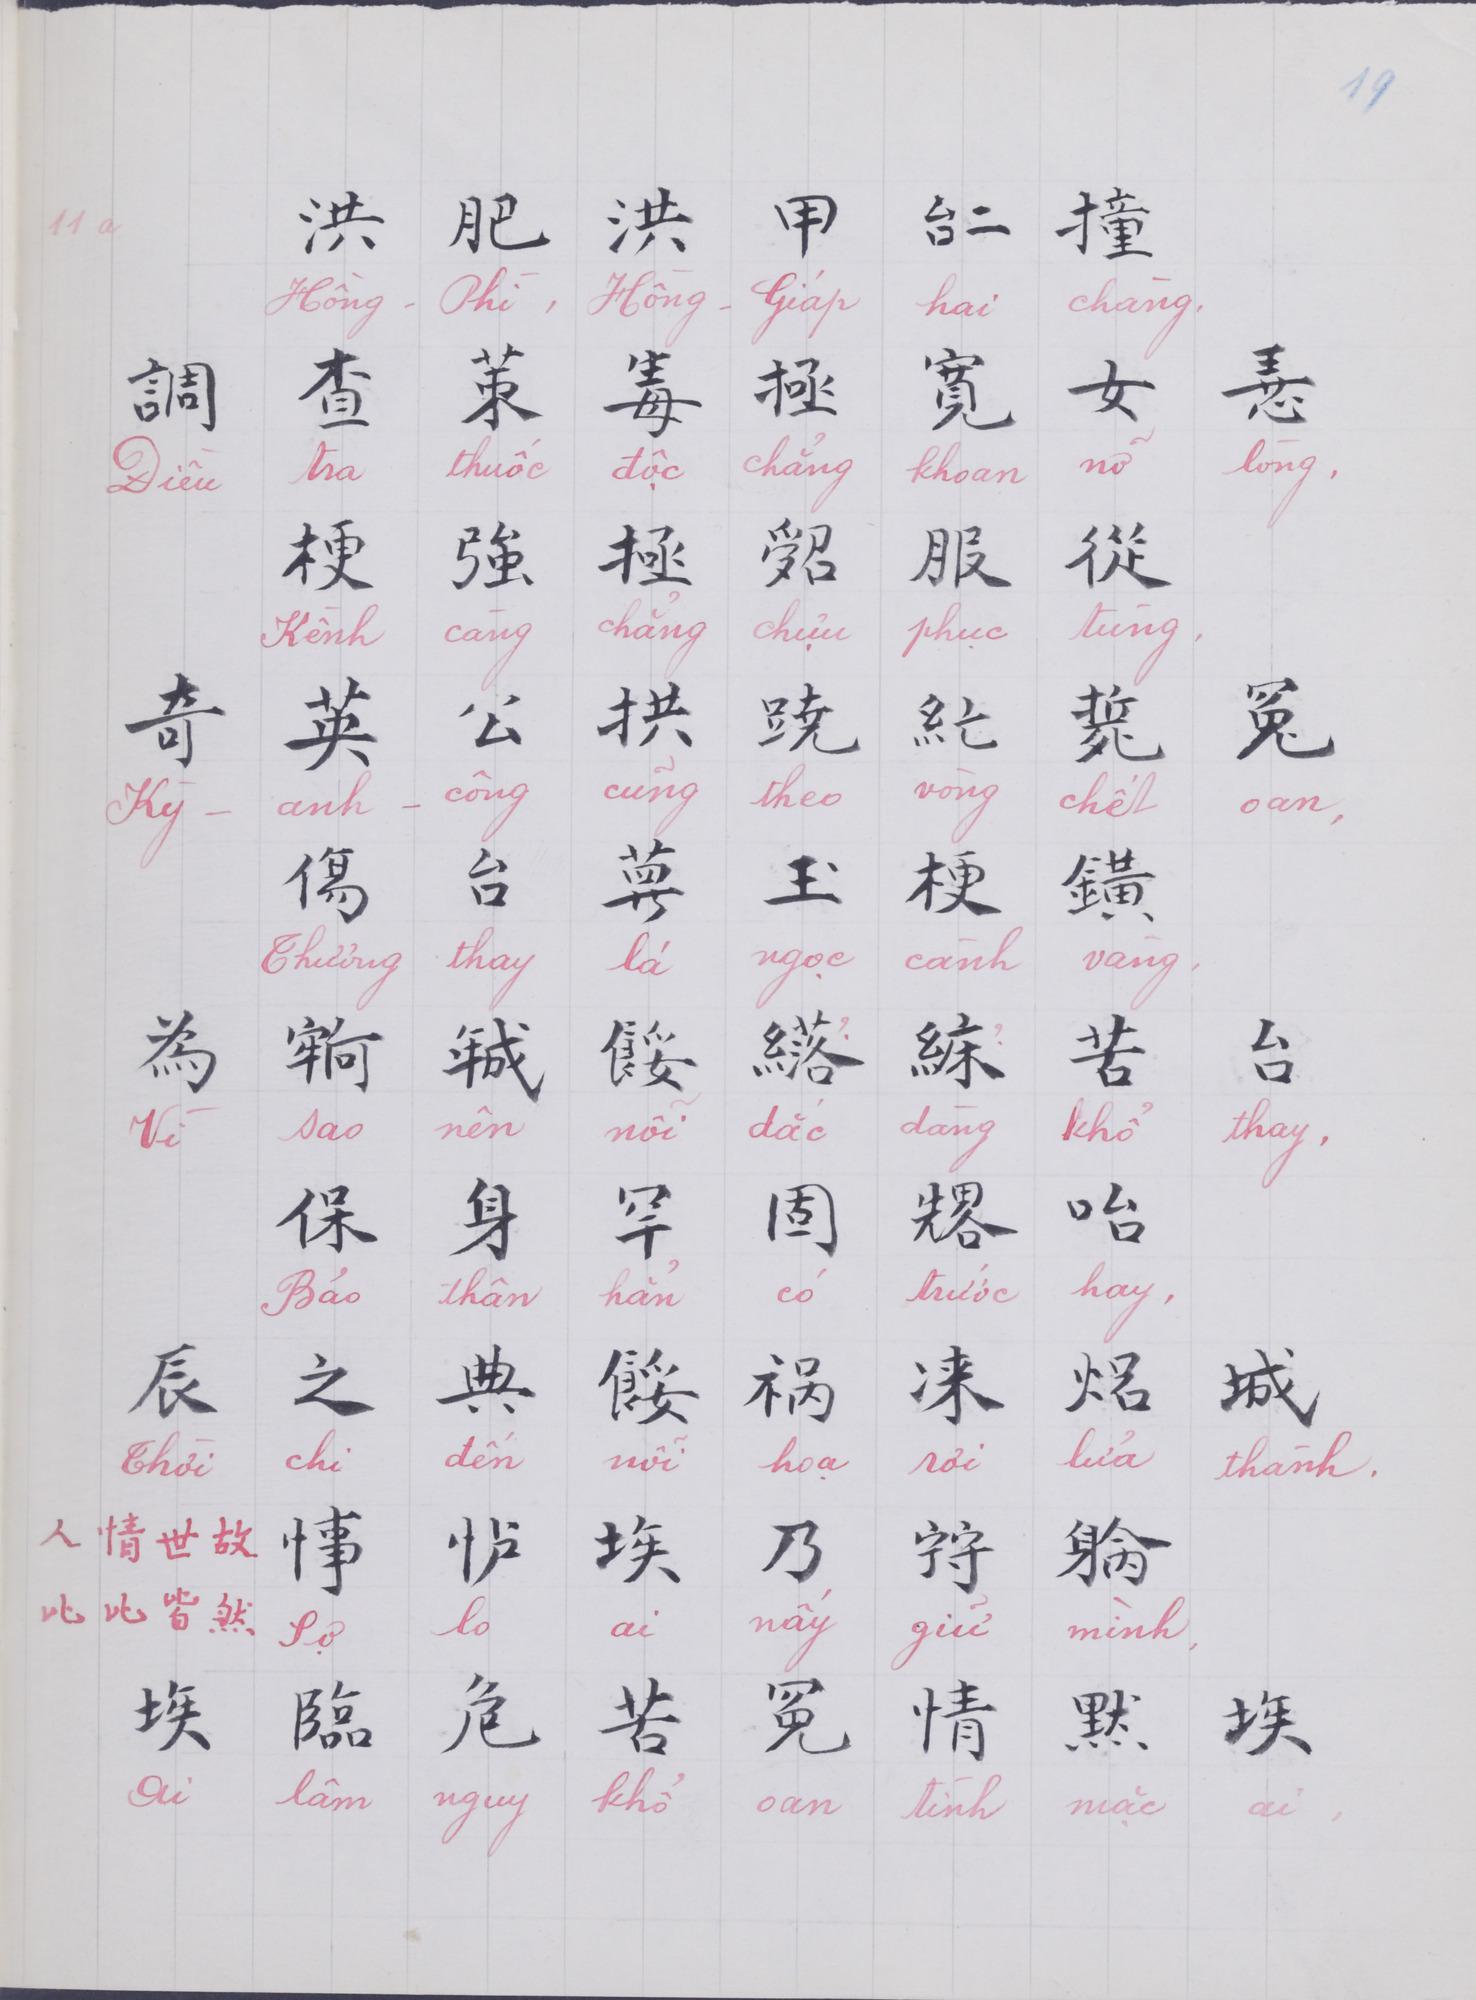 19
11a
洪 肥 洪 甲 台二 撞
Hồng - Phì, Hồng - Giáp hai chàng.
調 查 䓲 毒 極 寬 女
Điều tra thuốc độc chẳng khoan nỡ lòng,
梗 強 極 服 從
Kềnh càng chẳng chịu phục tùng,
奇 英 公 拱 蹺 冤
Kỳ - anh - công cũng theo vòng chết oan,
傷 台 玉 梗 鐄
Thương thay lá ngọc cành vàng,
為 餒 苦 台
Vì sao nên nỗi dắc dàng khổ thay,
保 身 罕 固 咍
Bảo thân hẳn có trước hay,
辰 之 典 餒 祸 城
Thời chi đến nỗi hoạ rơi lửa thành.
人 情 世 故
此 此 皆 然
埃 乃
Sợ lo ai nấy giữ mình,
埃 臨 危 苦 冤 情 默 埃
Ai lâm nguy khổ oan tình mặc ai,